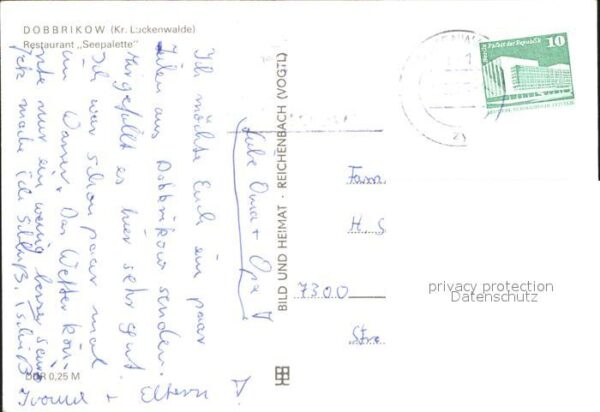 DOBBRIKOW (Kr. Luckenwalde)
Restaurant „Seepalette"
Liebe Oma + Opa!
Ich möchte Euch ein paar
Zeilen aus Dobbrikow senden.
Mir gefällt es hier sehr gut.
Ich war schon paar mal
im Wasser. Das Wetter kön-
nte nur ein wenig besser sein.
Jetz mache ich Schluß. Tschüß
Yvonne + Eltern!
DDR 0,25 M
BILD UND HEIMAT · REICHENBACH (VOGTL)
10
Berlin, Palast der Republik
Fam.
H. S
7300
Str
privacy protection
Datenschutz